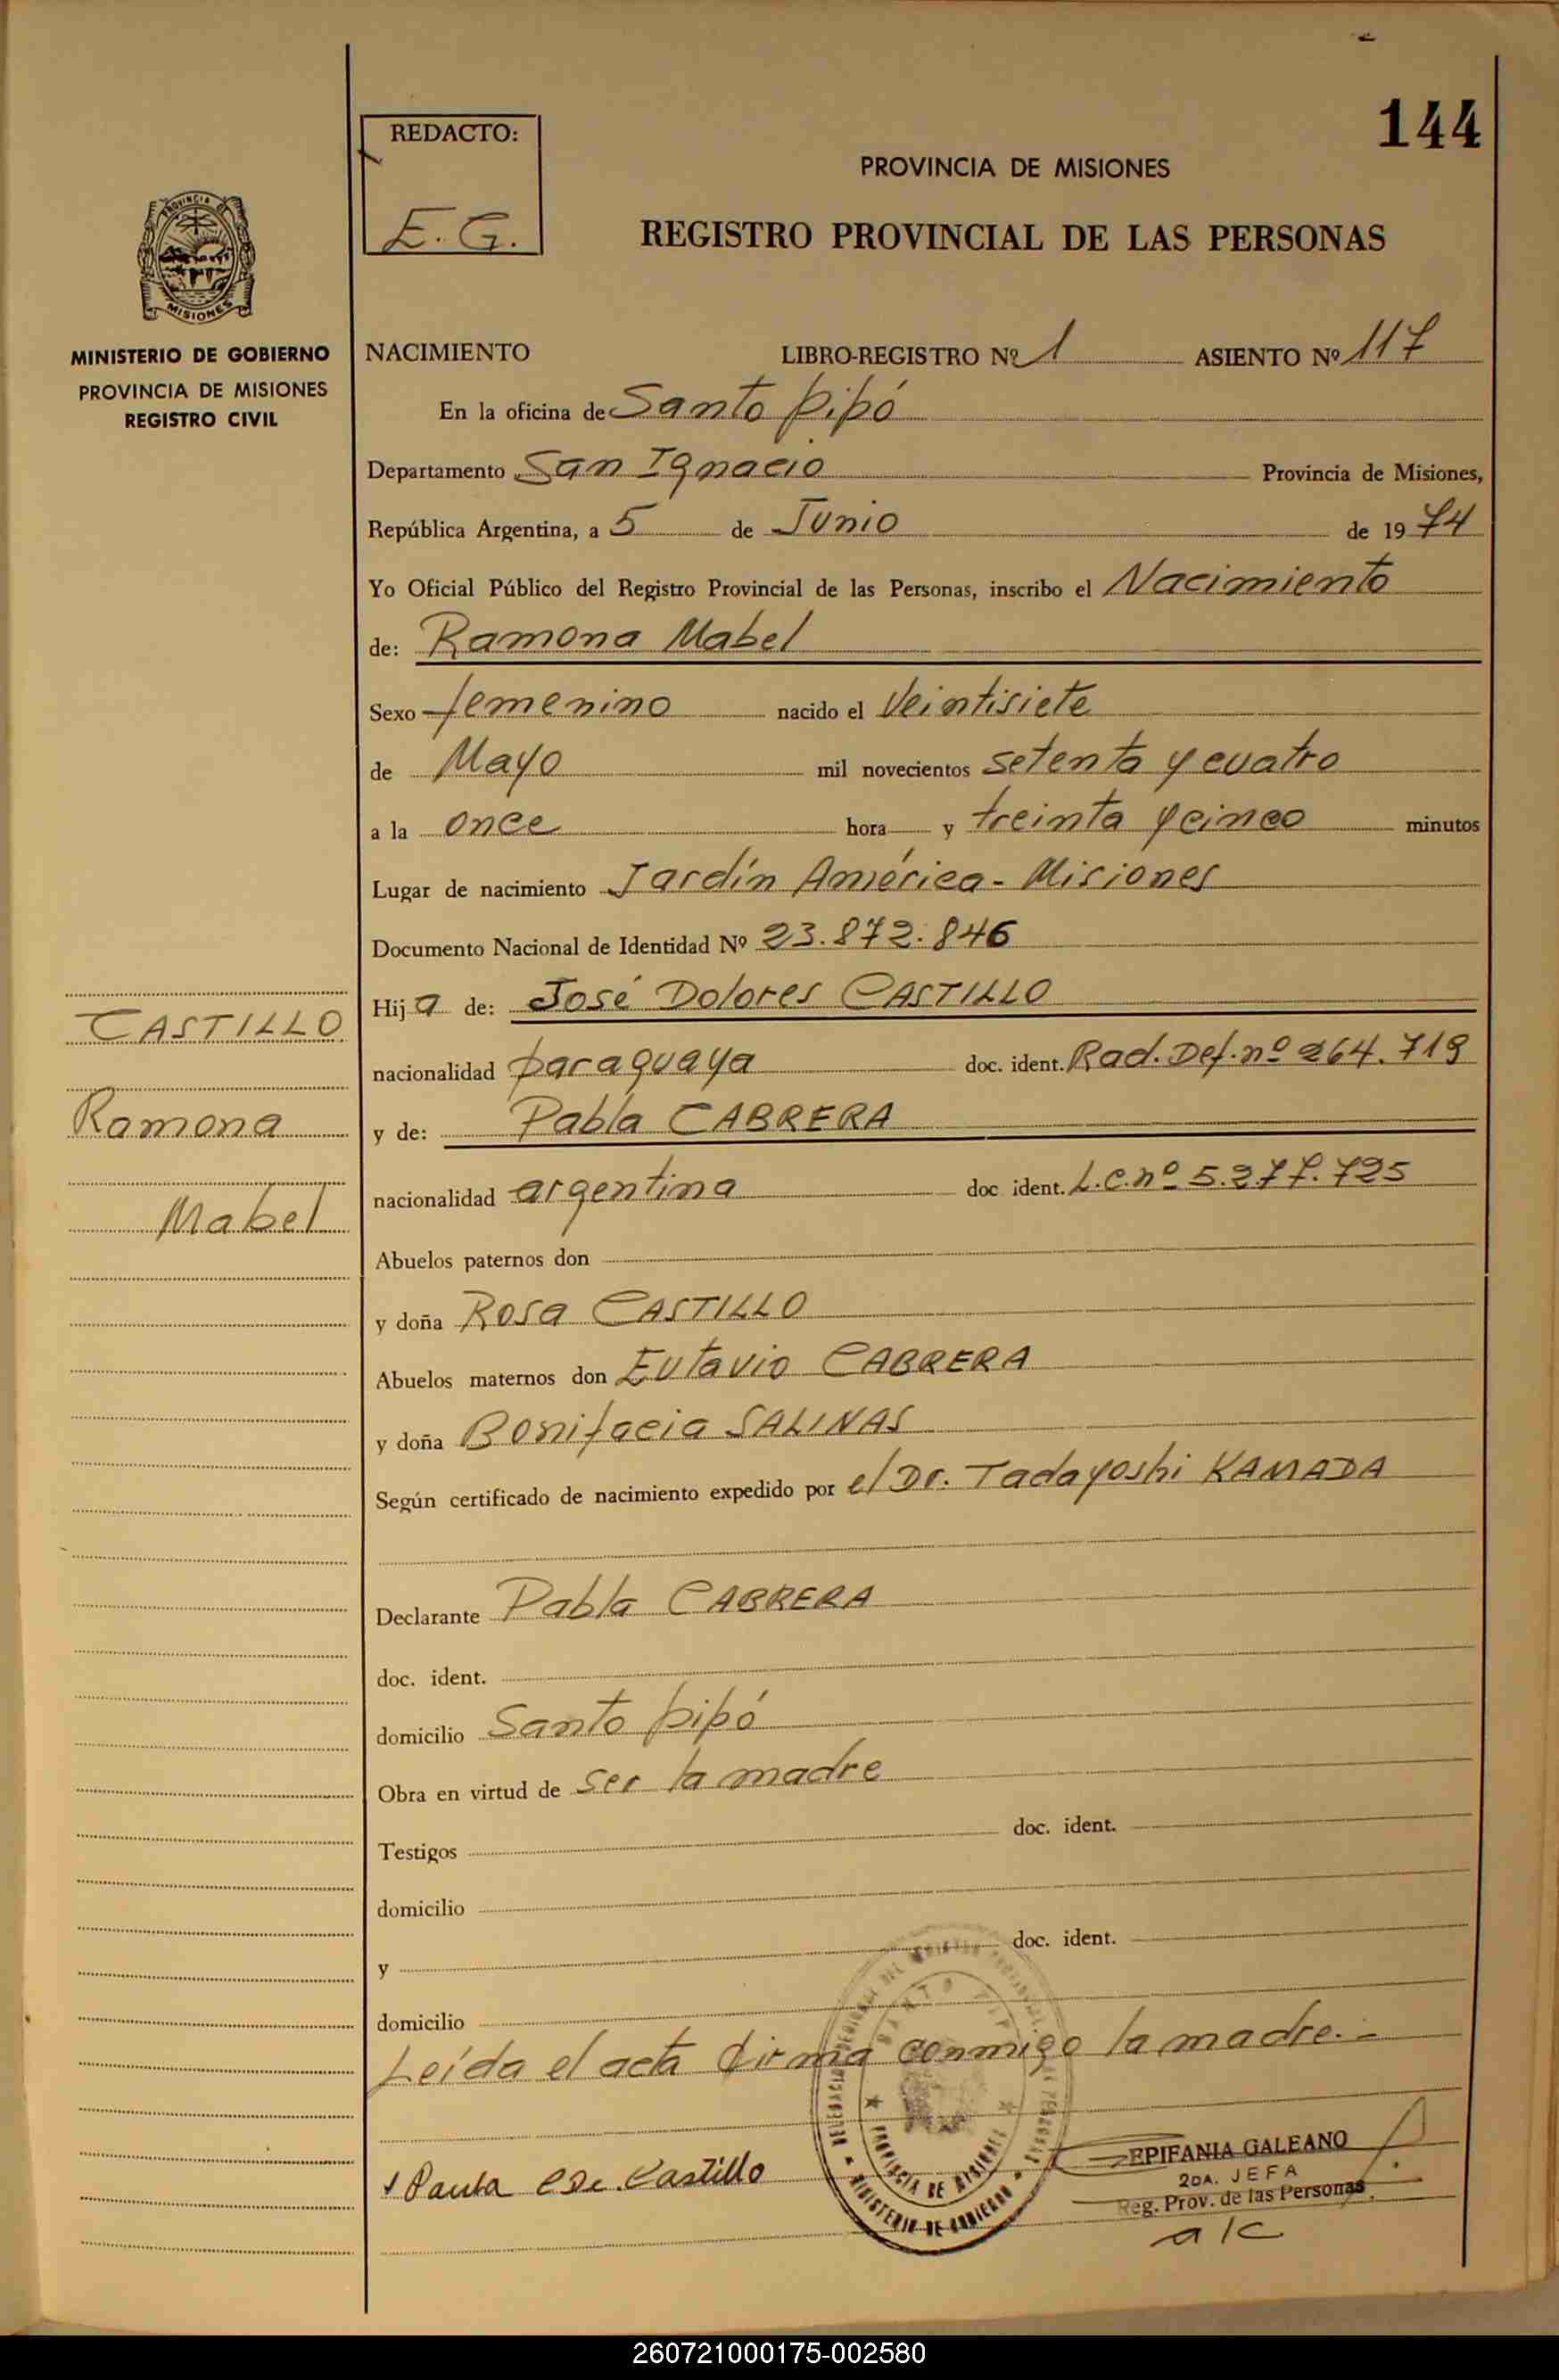 144
REDACTO:
E. G.
PROVINCIA DE MISIONES
REGISTRO PROVINCIAL DE LAS PERSONAS
PROVINCIA DE
MISIONES
MINISTERIO DE GOBIERNO
PROVINCIA DE MISIONES
REGISTRO CIVIL
NACIMIENTO LIBRO-REGISTRO Nº 1 ASIENTO Nº 117
En la oficina de Santo pipó
Departamento San Ignacio Provincia de Misiones,
República Argentina, a 5 de Junio de 1974
Yo Oficial Público del Registro Provincial de las Personas, inscribo el Nacimiento
de: Ramona Mabel
Sexo femenino nacido el Veintisiete
de Mayo mil novecientos setenta y cuatro
a la once hora y treinta y cinco minutos
Lugar de nacimiento Jardín América - Misiones
Documento Nacional de Identidad Nº 23.872.846
Hija de: José Dolores CASTILLO
CASTILLO
nacionalidad paraguaya doc. ident. Rad. Def. nº 264.719
Ramona
y de: Pabla CABRERA
Mabel
nacionalidad argentina doc ident. L.C. nº 5.277.725
Abuelos paternos don
y doña Rosa CASTILLO
Abuelos maternos don Eutavio CABRERA
y doña Bonifacia SALINAS
Según certificado de nacimiento expedido por el Dr. Tadayoshi KAMADA
Declarante Pabla CABRERA
doc. ident.
domicilio Santo pipó
Obra en virtud de ser la madre
Testigos doc. ident.
domicilio
y doc. ident.
domicilio
Leída el acta firma conmigo la madre.-
SANTO PIPO
PROVINCIA DE MISIONES
MINISTERIO DE GOBIERNO
Paula C De. Castillo
EPIFANIA GALEANO
2DA. JEFA
Reg. Prov. de las Personas
a/c
260721000175-002580